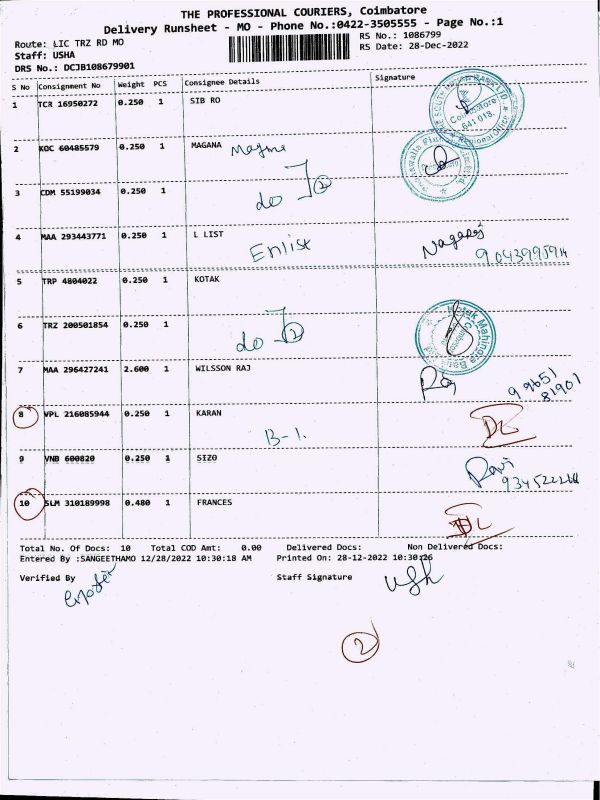 THE PROFESSIONAL COURIERS, Coimbatore
Delivery Runsheet - MO - Phone No.:0422-3505555 - Page No.:1
Route: LIC TRZ RD MO
RS No.: 1086799
Staff: USHA
RS Date: 28-Dec-2022
DRS No.: DCJB108679901
S No Consignment No Weight PCS Consignee Details Signature
1 TCR 16950272 0.250 1 SIB RO
Coimbatore
641 018.
Regional Office
2 KOC 60485579 0.250 1 MAGANA Magma
3 CDM 55199034 0.250 1 do 2
4 MAA 293443771 0.250 1 L LIST Enlist Nagaraj
5 TRP 4804022 0.250 1 KOTAK
6 TRZ 200501854 0.250 1 do 2
Kotak Mahindra Bank
7 MAA 296427241 2.600 1 WILSSON RAJ Raj
99651
81901
8 VPL 216085944 0.250 1 KARAN B-1. DL
9 VNB 600820 0.250 1 SIZO Ravi
10 SLM 310189998 0.480 1 FRANCES DL
Total No. Of Docs: 10 Total COD Amt: 0.00 Delivered Docs: Non Delivered Docs:
Entered By :SANGEETHAMO 12/28/2022 10:30:18 AM Printed On: 28-12-2022 10:30:26
Verified By Staff Signature
2